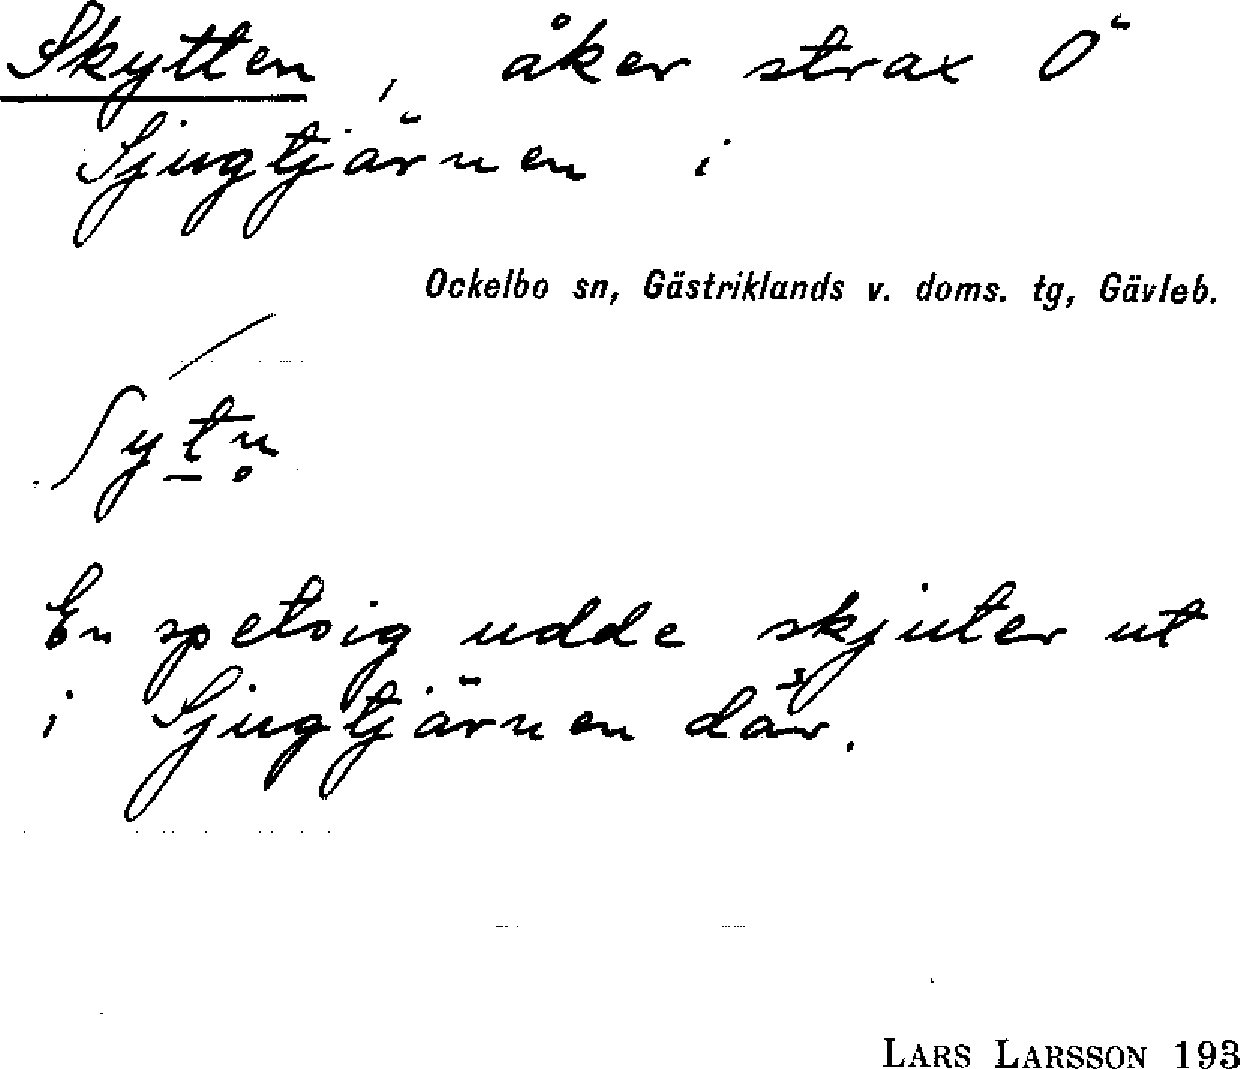 Skytten, åker strax Ö
Sjugtjärnen i
Ockelbo sn, Gästriklands v. doms. tg, Gävleb.
ʃytn̥
En spetsig udde skjuter ut
i Sjugtjärnen där.
LARS LARSSON 193